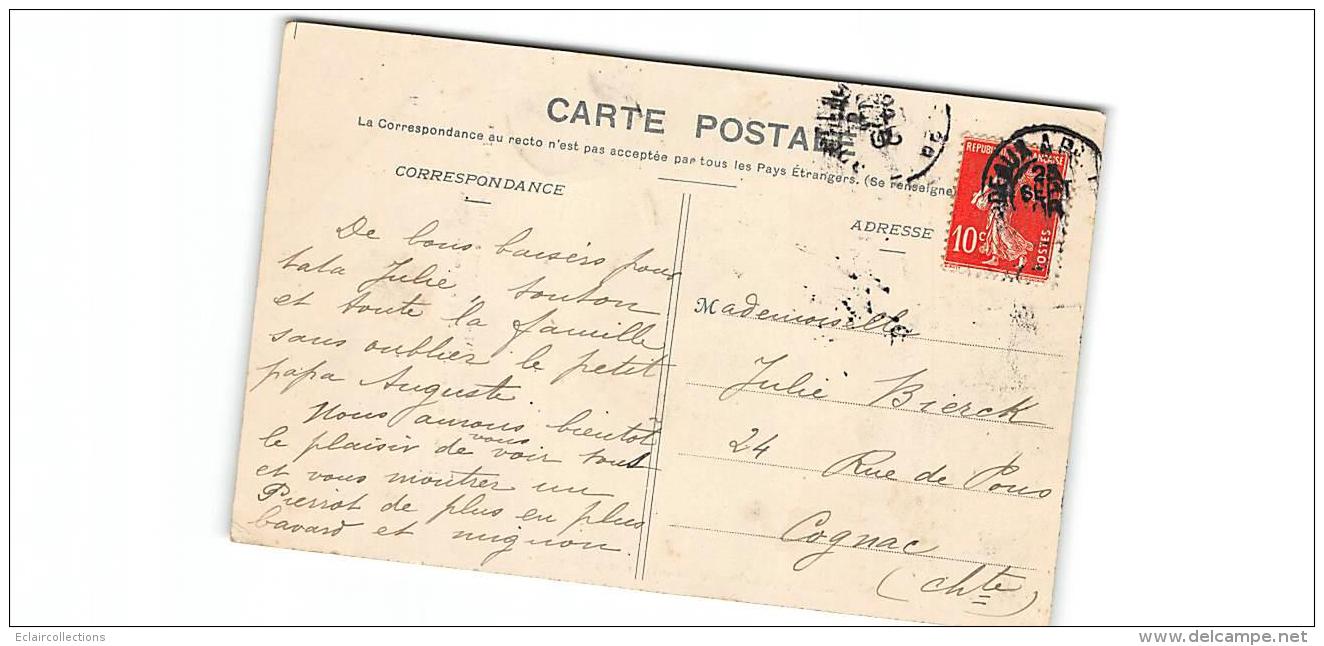 CARTE POSTALE
La Correspondance au recto n'est pas acceptée par tous les Pays Étrangers. (Se renseigne
CORRESPONDANCE
De bons baisers pour
tata Julie, tonton
et toute la famille
sans oublier le petit
papa Auguste.
Nous aurons bientôt
le plaisir de vous voir tous
et vous montrer un
Pierrot de plus en plus
bavard et mignon.
ADRESSE
REPUB
ANÇAISE
10c
POSTES
25
SEPT
Mademoiselle
Julie Bierck
24 Rue de Pons
Cognac
(Chte)
Eclaircollections
www.delcampe.net